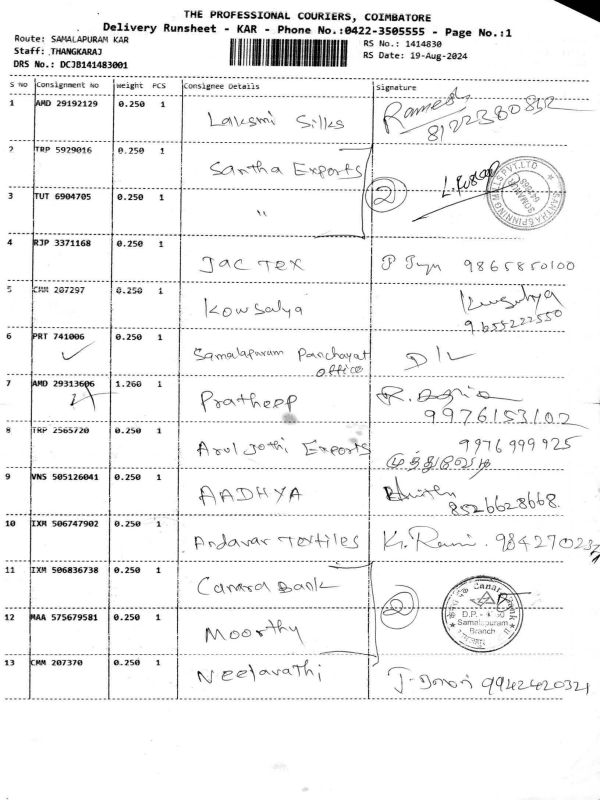 THE PROFESSIONAL COURIERS, COIMBATORE
Delivery Runsheet - KAR - Phone No.:0422-3505555 - Page No.:1
Route: SAMALAPURAM KAR
RS No.: 1414830
Staff: THANGKARAJ
RS Date: 19-Aug-2024
DRS No.: DCJB141483001
S No Consignment No Weight PCS Consignee Details Signature
1 AMD 29192129 0.250 1 Laksmi Silks Ramesh
8122380812
2 TRP 5929016 0.250 1 Santha Exports
2
SANTHA SPINNING MILLS PVT.LTD
3 TUT 6904705 0.250 1 "
4 RJP 3371168 0.250 1 Jac Tex P 9865850100
5 CMM 207297 0.250 1 Kowsalya Kowsalya
9655222550
6 PRT 741006 0.250 1 Samalapuram Panchayat office D/L
7 AMD 29313606 1.260 1 Pratheep R.
9976153102
8 TRP 2565720 0.250 1 Arul Jothi Exports 9976999925
முத்துவேல்
9 VNS 505126041 0.250 1 AADHYA
8526628668
10 IXM 506747902 0.250 1 Andavar Textiles K. Rani.
11 IXM 506836738 0.250 1 Canara Bank
2
Canara Bank
D.P.
Samalapuram
Branch
12 MAA 575679581 0.250 1 Moorthy
13 CMM 207370 0.250 1 Neelavathi J. 9942420321